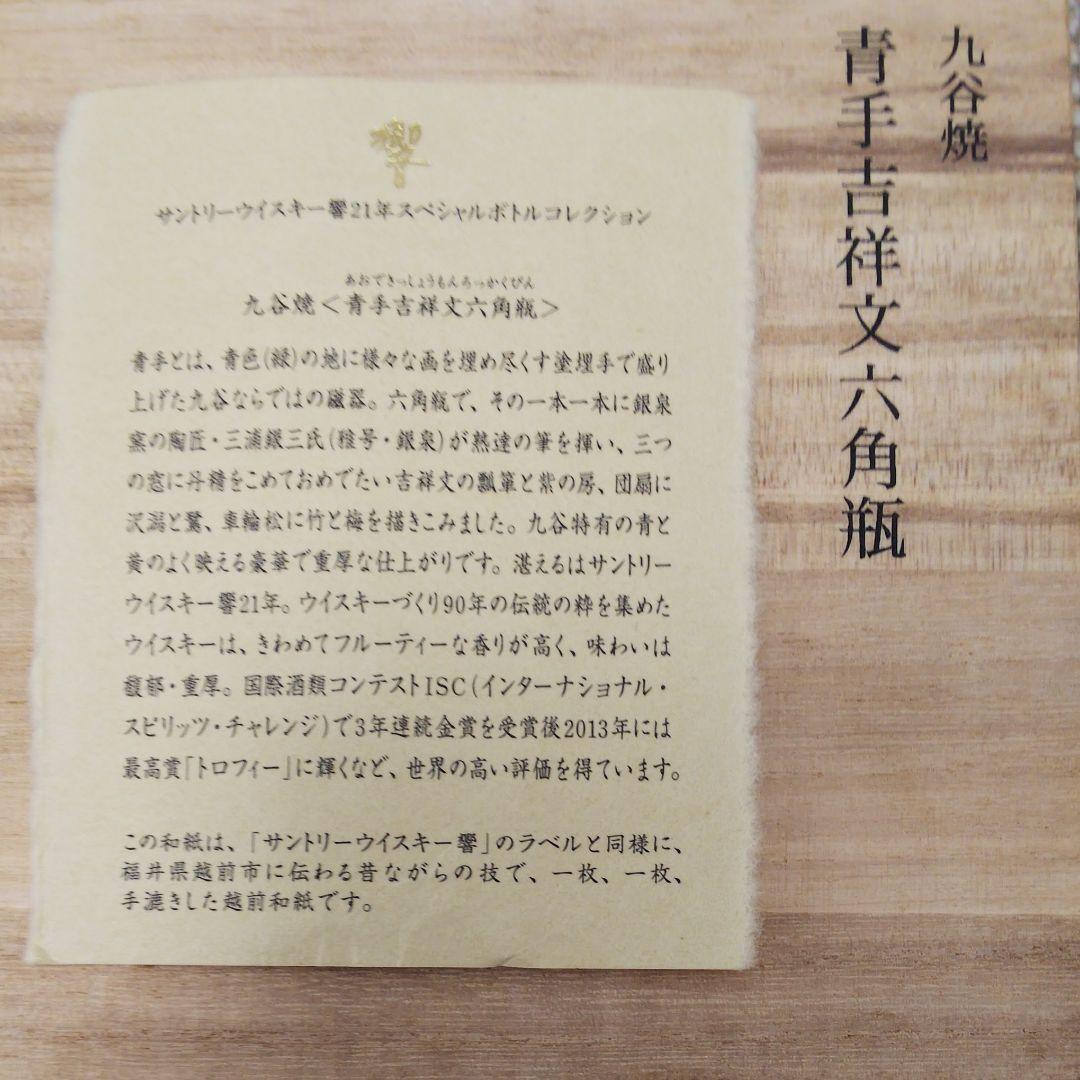 九谷焼
青手吉祥文六角瓶
響
サントリーウイスキー響21年スペシャルボトルコレクション
あおできっしょうもんろっかくびん
九谷焼＜青手吉祥文六角瓶＞
青手とは、青色(緑)の地に様々な画を埋め尽くす塗埋手で盛り
上げた九谷ならではの磁器。六角瓶で、その一本一本に銀泉
窯の陶匠・三浦銀三氏(雅号・銀泉)が熟達の筆を揮い、三つ
の窓に丹精をこめておめでたい吉祥文の瓢箪と紫の房、団扇に
沢瀉と鷺、車輪松に竹と梅を描きこみました。九谷特有の青と
黄のよく映える豪華で重厚な仕上がりです。湛えるはサントリー
ウイスキー響21年。ウイスキーづくり90年の伝統の粋を集めた
ウイスキーは、きわめてフルーティーな香りが高く、味わいは
馥郁・重厚。国際酒類コンテストISC(インターナショナル・
スピリッツ・チャレンジ)で3年連続金賞を受賞後2013年には
最高賞「トロフィー」に輝くなど、世界の高い評価を得ています。
この和紙は、「サントリーウイスキー響」のラベルと同様に、
福井県越前市に伝わる昔ながらの技で、一枚、一枚、
手漉きした越前和紙です。